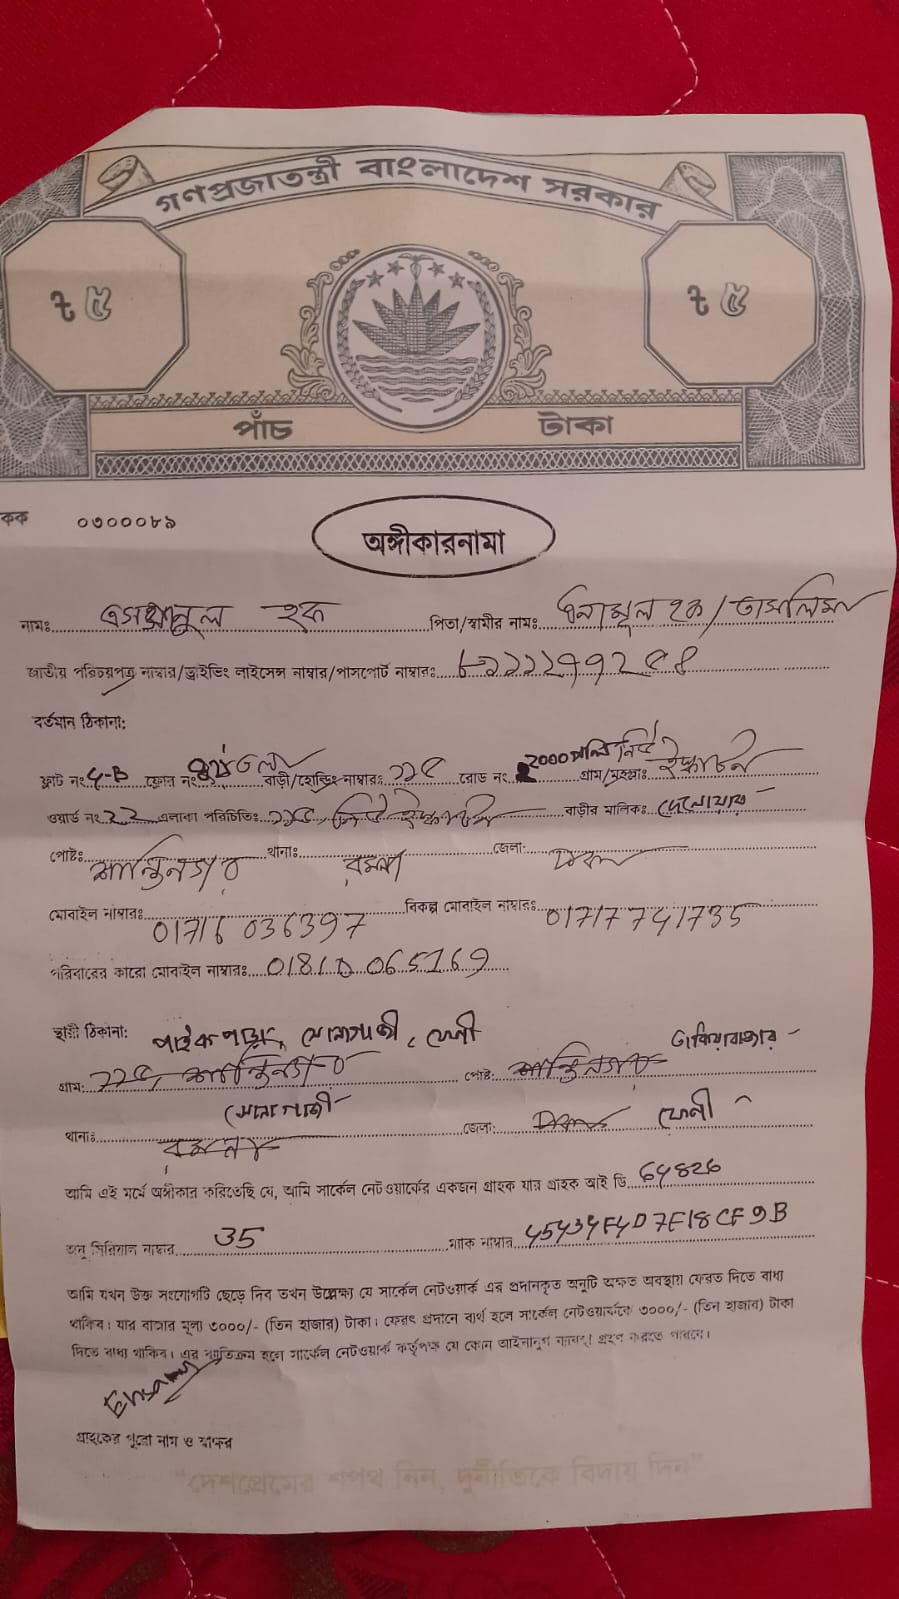 গণপ্রজাতন্ত্রী বাংলাদেশ সরকার
৳ ৫ ৳ ৫
পাঁচ টাকা
কক ০৩০০০৮৯
অঙ্গীকারনামা
নামঃ এসানুল হক পিতা/স্বামীর নামঃ এনামুল হক/তাসলিমা
জাতীয় পরিচয়পত্র নাম্বার/ড্রাইভিং লাইসেন্স নাম্বার/পাসপোর্ট নাম্বারঃ
বর্তমান ঠিকানা:
ফ্লাট নং 4-B ফ্লোর নং বাড়ী/হোল্ডিং নাম্বারঃ রোড নং গ্রাম/মহল্লাঃ ইস্কাটন
ওয়ার্ড নং এলাকা পরিচিতিঃ বাড়ীর মালিকঃ দেলোয়ার
পোষ্টঃ শান্তিনগর থানাঃ রমনা জেলা: ঢাকা
মোবাইল নাম্বারঃ 01716 036397 বিকল্প মোবাইল নাম্বারঃ 01717741735
পরিবারের কারো মোবাইল নাম্বারঃ
স্থায়ী ঠিকানা: পাইকপাড়া, সোনাগাজী, ফেনী
গ্রাম: শান্তিনগর পোষ্ট: শান্তিনগর তাকিয়াবাজার
থানাঃ রমনা সোনাগাজী জেলা: ঢাকা ফেনী
আমি এই মর্মে অঙ্গীকার করিতেছি যে, আমি সার্কেল নেটওয়ার্কের একজন গ্রাহক যার গ্রাহক আই ডি 64826
অনু সিরিয়াল নাম্বার 35 ম্যাক নাম্বার 45434F4D7F18CF9B
আমি যখন উক্ত সংযোগটি ছেড়ে দিব তখন উল্লেক্ষ্য যে সার্কেল নেটওয়ার্ক এর প্রদানকৃত অনুটি অক্ষত অবস্থায় ফেরত দিতে বাধ্য
থাকিব। যার বাজার মূল্য ৩০০০/- (তিন হাজার) টাকা। ফেরৎ প্রদানে ব্যর্থ হলে সার্কেল নেটওয়ার্ককে ৩০০০/- (তিন হাজার) টাকা
দিতে বাধ্য থাকিব। এর ব্যতিক্রম হলে সার্কেল নেটওয়ার্ক কর্তৃপক্ষ যে কোন আইনানুগ ব্যবস্থা গ্রহণ করতে পারবে।
গ্রাহকের পুরো নাম ও স্বাক্ষর
"দেশপ্রেমের শপথ নিন, দুর্নীতিকে বিদায় দিন"